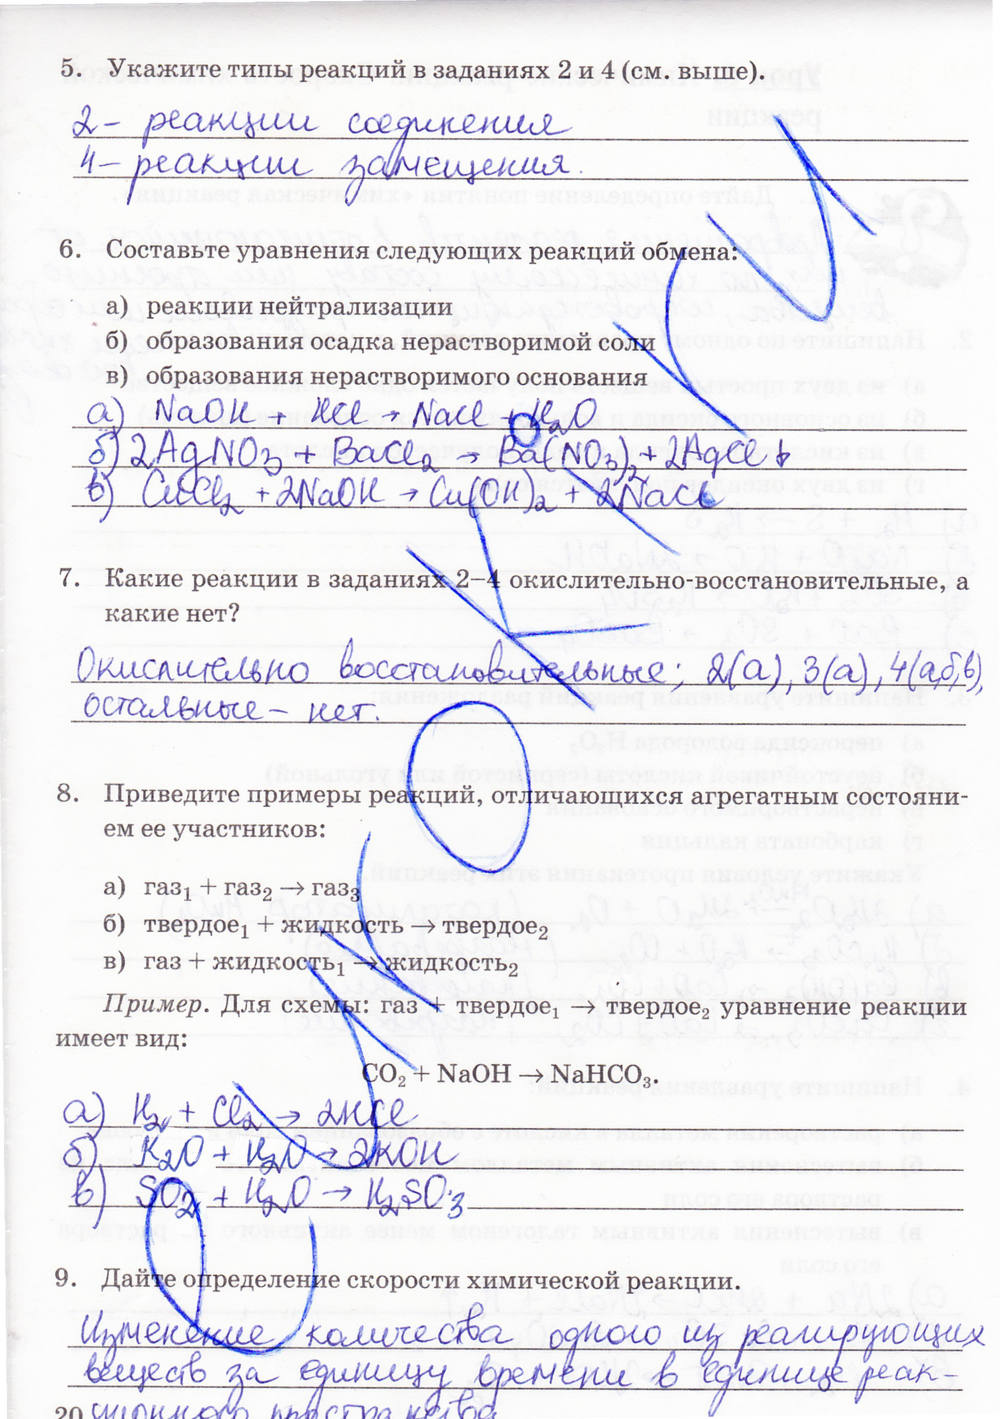 5. Укажите типы реакций в заданиях 2 и 4 (см. выше).
2 – реакции соединения
4 – реакции замещения.
6. Составьте уравнения следующих реакций обмена:
а) реакции нейтрализации
б) образования осадка нерастворимой соли
в) образования нерастворимого основания
а) NaOH + HCl → NaCl + H₂O
б) 2AgNO₃ + BaCl₂ → Ba(NO₃)₂ + 2AgCl↓
в) CuCl₂ + 2NaOH → Cu(OH)₂ + 2NaCl
7. Какие реакции в заданиях 2–4 окислительно-восстановительные, а
какие нет?
Окислительно восстановительные; 2(а), 3(а), 4(а,б,в),
остальные – нет.
8. Приведите примеры реакций, отличающихся агрегатным состояни-
ем ее участников:
а) газ₁ + газ₂ → газ₃
б) твердое₁ + жидкость → твердое₂
в) газ + жидкость₁ → жидкость₂
Пример. Для схемы: газ + твердое₁ → твердое₂ уравнение реакции
имеет вид:
CO₂ + NaOH → NaHCO₃.
а) H₂ + Cl₂ → 2HCl
б) K₂O + H₂O → 2KOH
в) SO₂ + H₂O → H₂SO₃
9. Дайте определение скорости химической реакции.
Изменение количества одного из реагирующих
веществ за единицу времени в единице реак-
20 ционного пространства